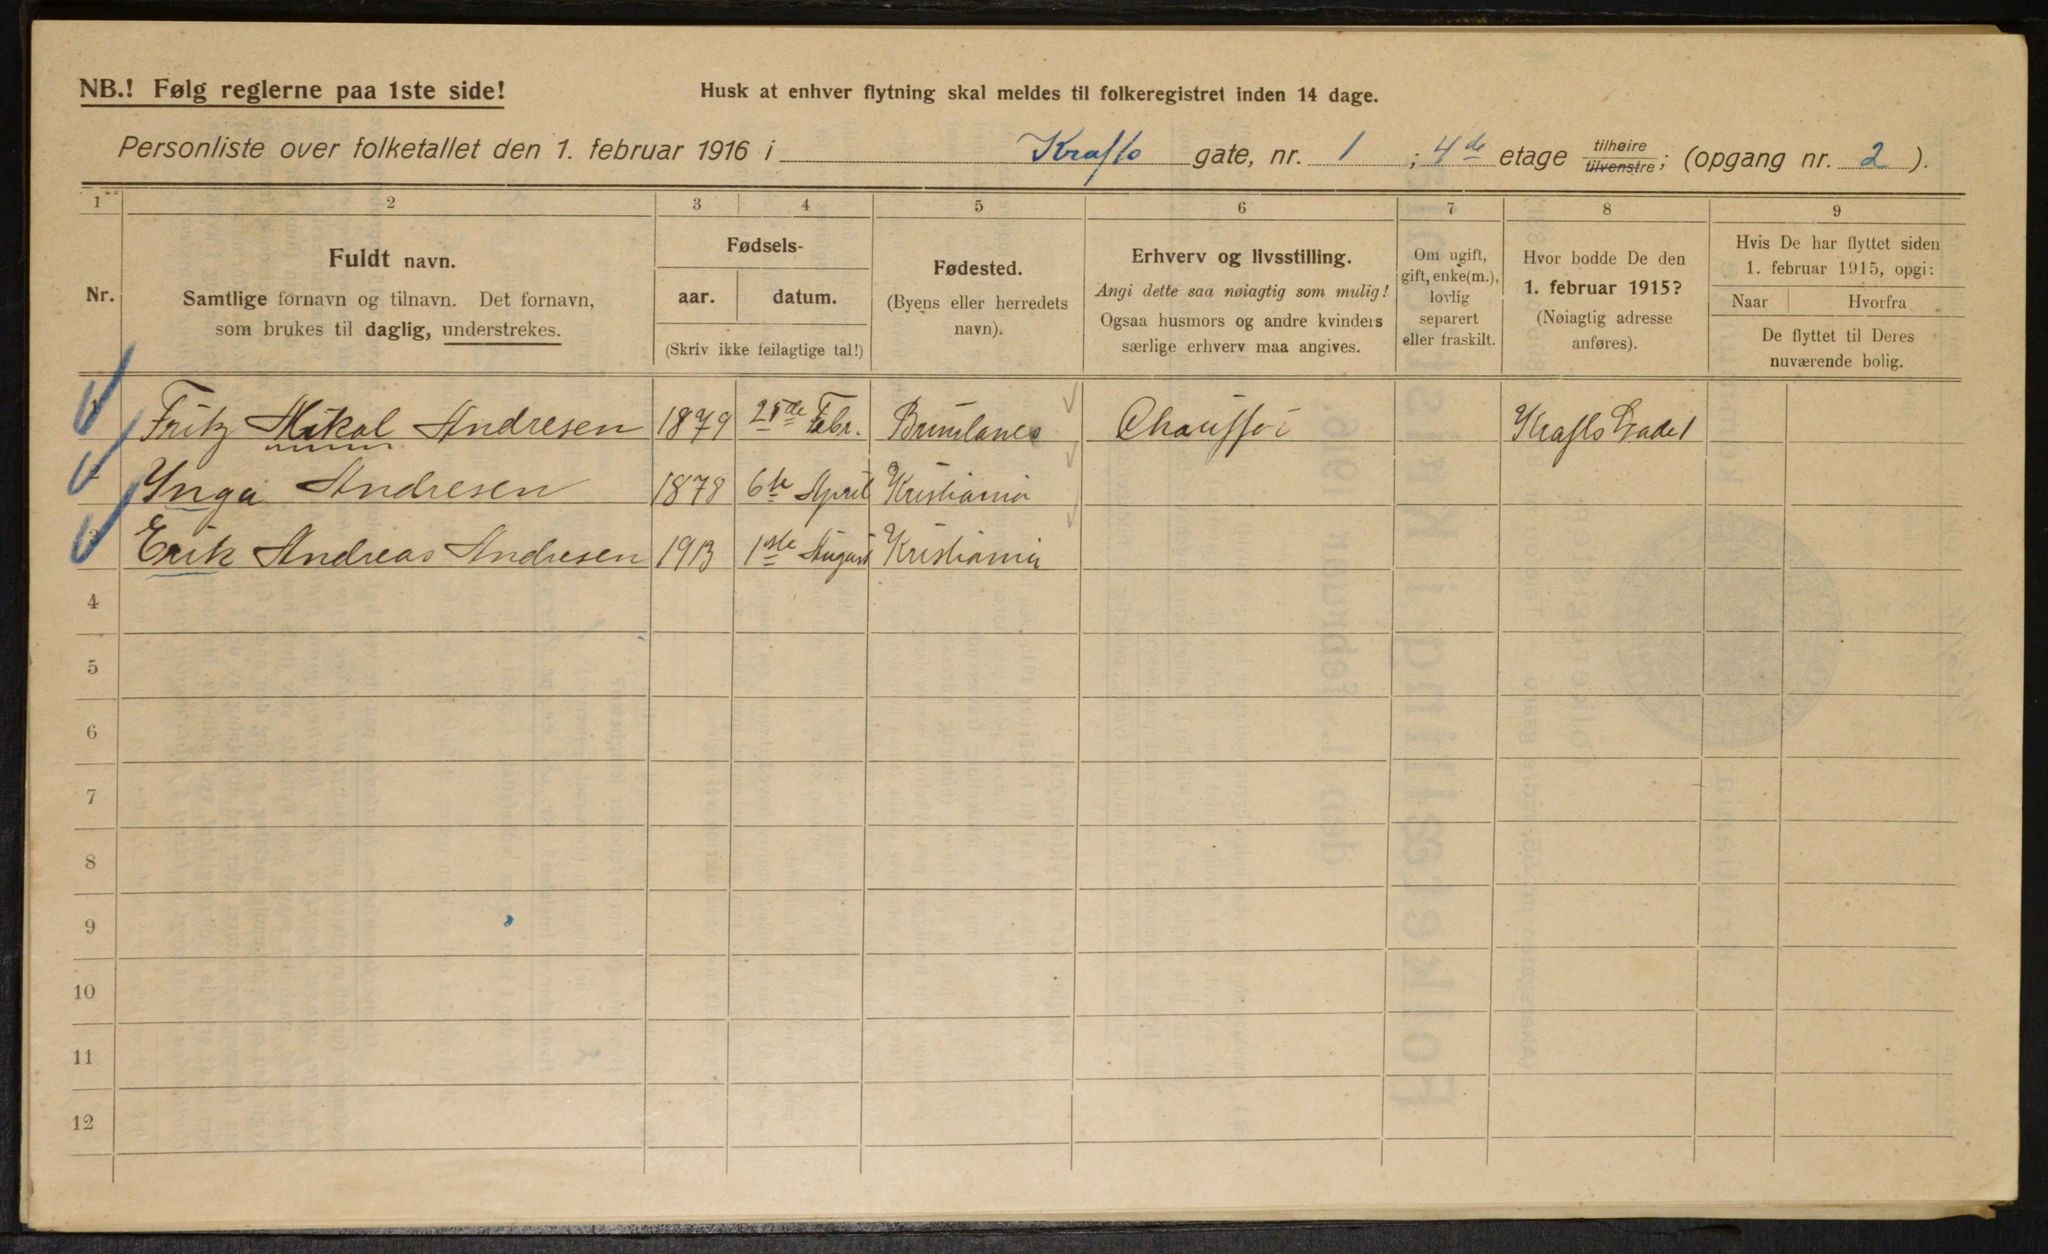 NB.! Følg reglerne paa 1ste side!
Husk at enhver flytning skal meldes til folkeregistret inden 14 dage.
Personliste over folketallet den 1. februar 1916 i Krafts gate, nr. 1 ; 4de etage tilhøire tilvenstre; (opgang nr. 2 ).
1 2 3 4 5 6 7 8 9
Nr.
Fuldt navn.
Samtlige fornavn og tilnavn. Det fornavn,
som brukes til daglig, understrekes.
Fødsels-
aar. datum.
(Skriv ikke feilagtige tal!)
Fødested.
(Byens eller herredets
navn).
Erhverv og livsstilling.
Angi dette saa nøiagtig som mulig!
Ogsaa husmors og andre kvinders
særlige erhverv maa angives.
Om ugift,
gift, enke(m.),
lovlig
separert
eller fraskilt.
Hvor bodde De den
1. februar 1915?
(Nøiagtig adresse
anføres).
Hvis De har flyttet siden
1. februar 1915, opgi:
Naar Hvorfra
De flyttet til Deres
nuværende bolig.
1 Fritz Mikal Andresen 1879 Febr. Brunlanes Chauffør Krafts Gade 1
2 Ynga Andresen 1878 6te April Kristiania
3 Erik Andreas Andresen 1913 1ste August Kristiania
4
5
6
7
8
9
10
11
12